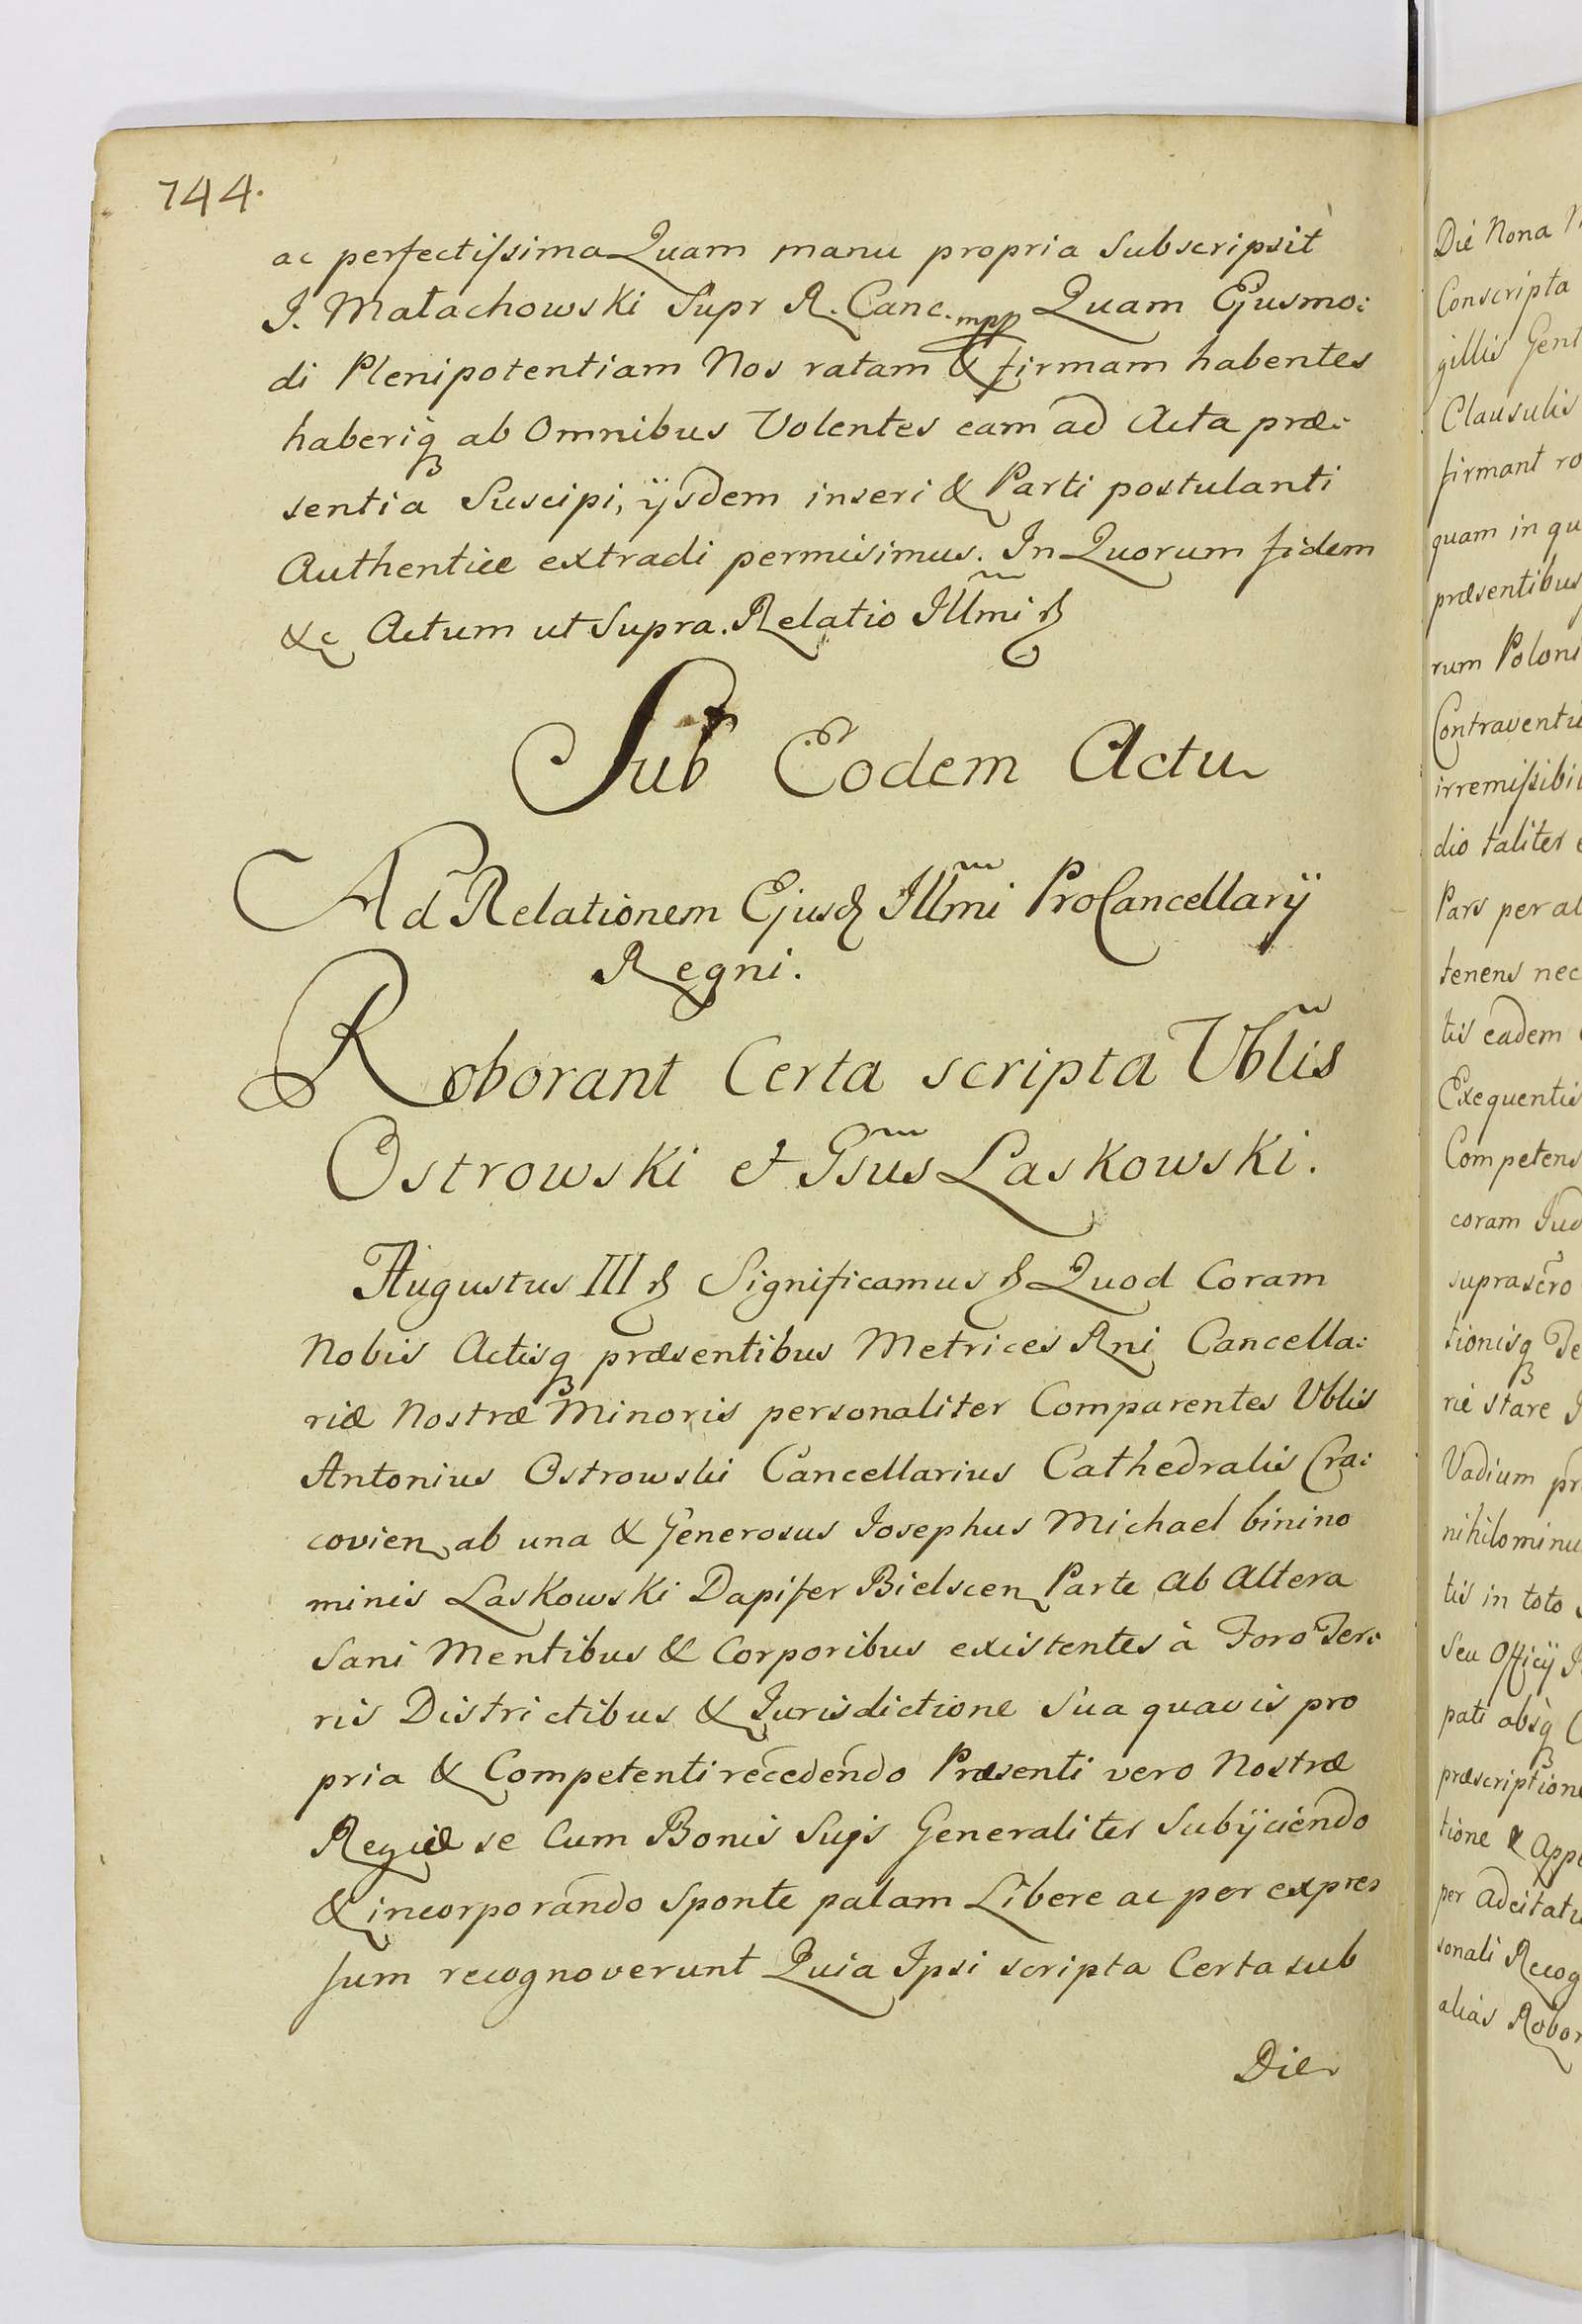 744.
ac perfectissima Quam manu propria Subscripsit
J. Małachowski Supr R. Canc. mpp Quam Ejusmo:
di Plenipotentiam Nos ratam & firmam habentes
haberiq ab Omnibus Volentes eam ad Acta præ:
sentia Suscipi, ijsdem inseri & Parti postulanti
Authentice extradi permisimus. In Quorum fidem
&c Actum ut Supra. Relatio Illmi
Sub Eodem Actu
Ad Relationem Ejusd Illmi ProCancellarij
Regni.
Roborant Certa scripta Vblis
Ostrowski et Gsus Laskowski.
Augustus III Significamus Quod Coram
Nobis Actisq præsentibus Metrices Rni Cancella:
riæ Nostræ Minoris personaliter Comparentes Vblis
Antonius Ostrowski Cancellarius Cathedralis Cra:
covien ab una & Generosus Josephus Michael binino
minis Laskowski Dapifer Bielscen Parte ab Altera
Sani Mentibus & Corporibus existentes à Foro Ter:
ris Districtibus & Jurisdictione Sua quavis pro
pria & Competenti recedendo Præsenti vero Nostræ
Regiæ se Cum Bonis Sujs Generaliter Subijciendo
& incorporando Sponte palam Libere ac per expres
sum recognoverunt Quia Ipsi scripta Certa sub
Die
Die Nona
Conscripta
gillis
Clausulis
firmant
quam in
præsentibus
rum
dio taliter
Pars per
tenens nec
tis eadem
Exequentis
Competens
coram
suprascro
tionisq
rie stare
Vadium
tis in toto
Seu Officij
pati absq